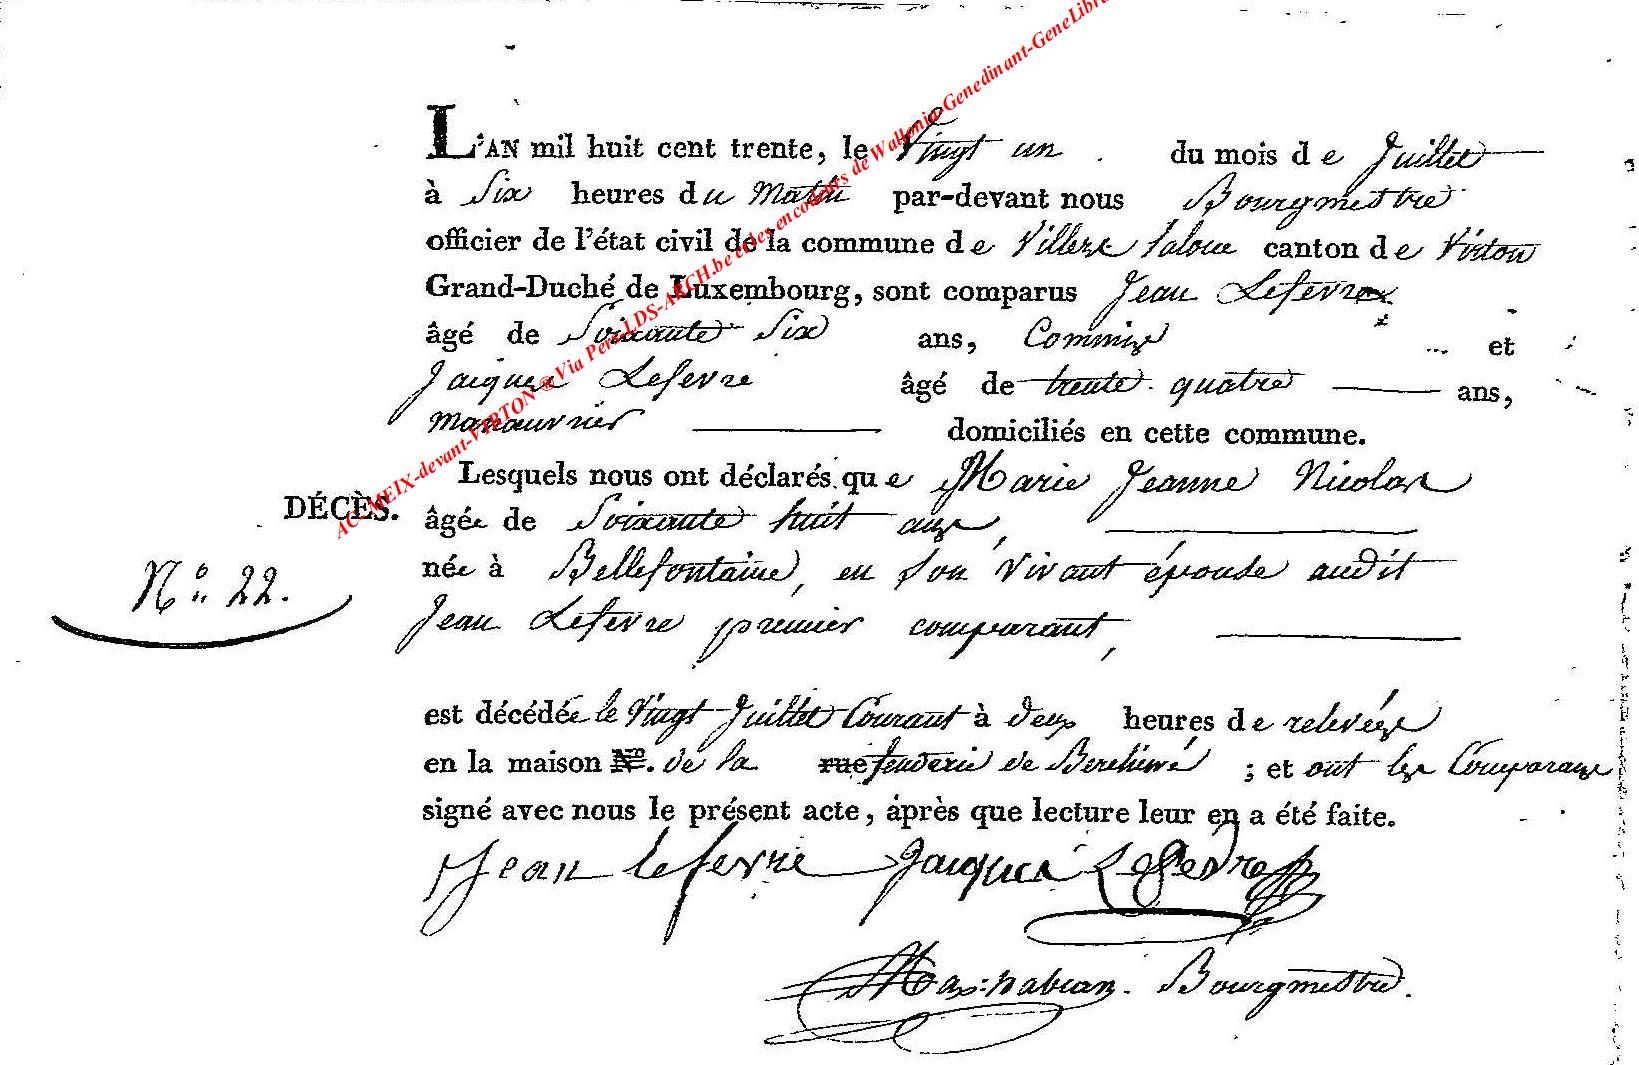 L'AN mil huit cent trente, le Vingt un du mois de Juillet
à Six heures du Matin par-devant nous Bourgmestre
officier de l'état civil de la commune de Villers laloue canton de Virton
Grand-Duché de Luxembourg, sont comparus Jean Lefevre
âgé de Soixante Six ans, Commis et
Jacques Lefevre âgé de trente quatre ans,
manouvrier domiciliés en cette commune.
Lesquels nous ont déclarés que Marie Jeanne Nicolas
DÉCÈS. âgée de Soixante huit ans,
N° 22. née à Bellefontaine, en son vivant épouse audit
Jean Lefevre premier comparant,
est décédée le Vingt Juillet Courant à deux heures de relevées
en la maison N°. de la rue fenderie de Berchiwé ; et ont les Comparans
signé avec nous le présent acte, après que lecture leur en a été faite.
Jean lefevre Jacques Lefevre
Bourgmestre.
AC-MEIX-devant-VIRTON ® Via Pero LDS-ARCH.be et les encodeurs de Wallonia-Genedinant-GeneLibr